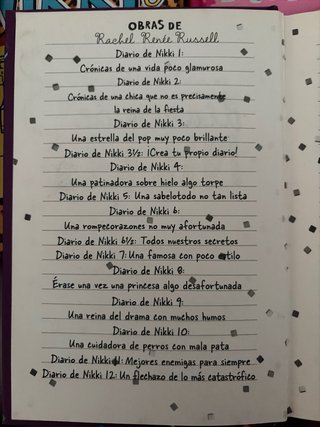 OBRAS DE
Rachel Renée Russell
Diario de Nikki 1:
Crónicas de una vida poco glamurosa
Diario de Nikki 2:
Crónicas de una chica que no es precisamente
la reina de la fiesta
Diario de Nikki 3:
Una estrella del pop muy poco brillante
Diario de Nikki 3½: ¡Crea tu propio diario!
Diario de Nikki 4:
Una patinadora sobre hielo algo torpe
Diario de Nikki 5: Una sabelotodo no tan lista
Diario de Nikki 6:
Una rompecorazones no muy afortunada
Diario de Nikki 6½: Todos nuestros secretos
Diario de Nikki 7: Una famosa con poco estilo
Diario de Nikki 8:
Érase una vez una princesa algo desafortunada
Diario de Nikki 9:
Una reina del drama con muchos humos
Diario de Nikki 10:
Una cuidadora de perros con mala pata
Diario de Nikki 11: Mejores enemigas para siempre
Diario de Nikki 12: Un flechazo de lo más catastrófico